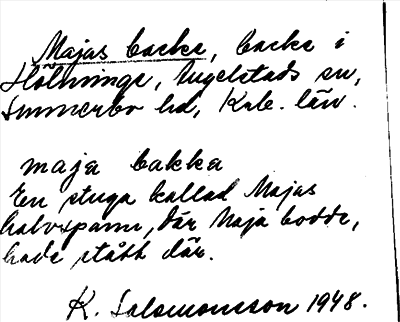 Majas backe, backe i
Hölminge, Angelstads sn,
Sunnerbo hd, Krb. län.
maja bakka
En stuga kallad Majas
halvspann, där Maja bodde,
hade stått där.
K. Salomonsson 1948.